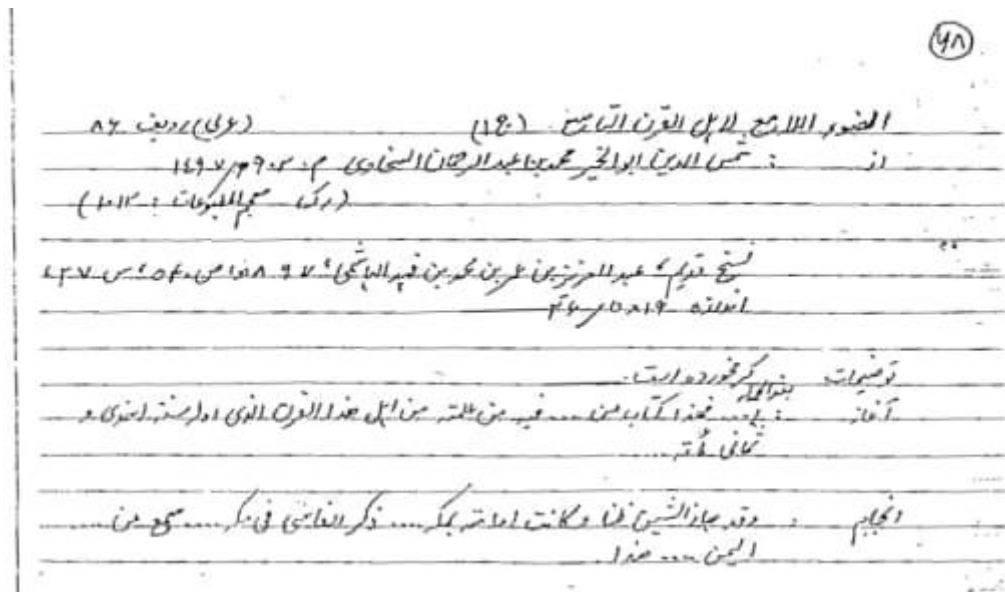 ۶۸
الضوء اللامع لاہل القرن التاسع (ج ۱) (عربی) ردیف ۸۶
از : شمس الدین ابوالخیر محمد بن عبدالرحمان السخاوی م : ۹۰۲ھ / ۱۴۹۷
(رک معجم المطبوعات : ۱۰۱۲)
نسخ قدیم، عبدالعزیز بن عمر بن محمد بن فہد الہاشمی، ۸۹۷ ص ۵۴۰، س ۲۷
اندازہ ۱۹
توضیحات کرمخوردہ است۔
آغاز : بعد الحمد .... فھذا کتاب من .... فیہ من علمتہ من اہل ھذا القرن الذی اولہ سنۃ احدی و
ثمانی مأتہ ....
انجام : وقد جاز الستین ظنا و کانت اقامتہ بمکہ .... ذکر الفاسی فی مکہ .... من ....
الیمن .... ھذا